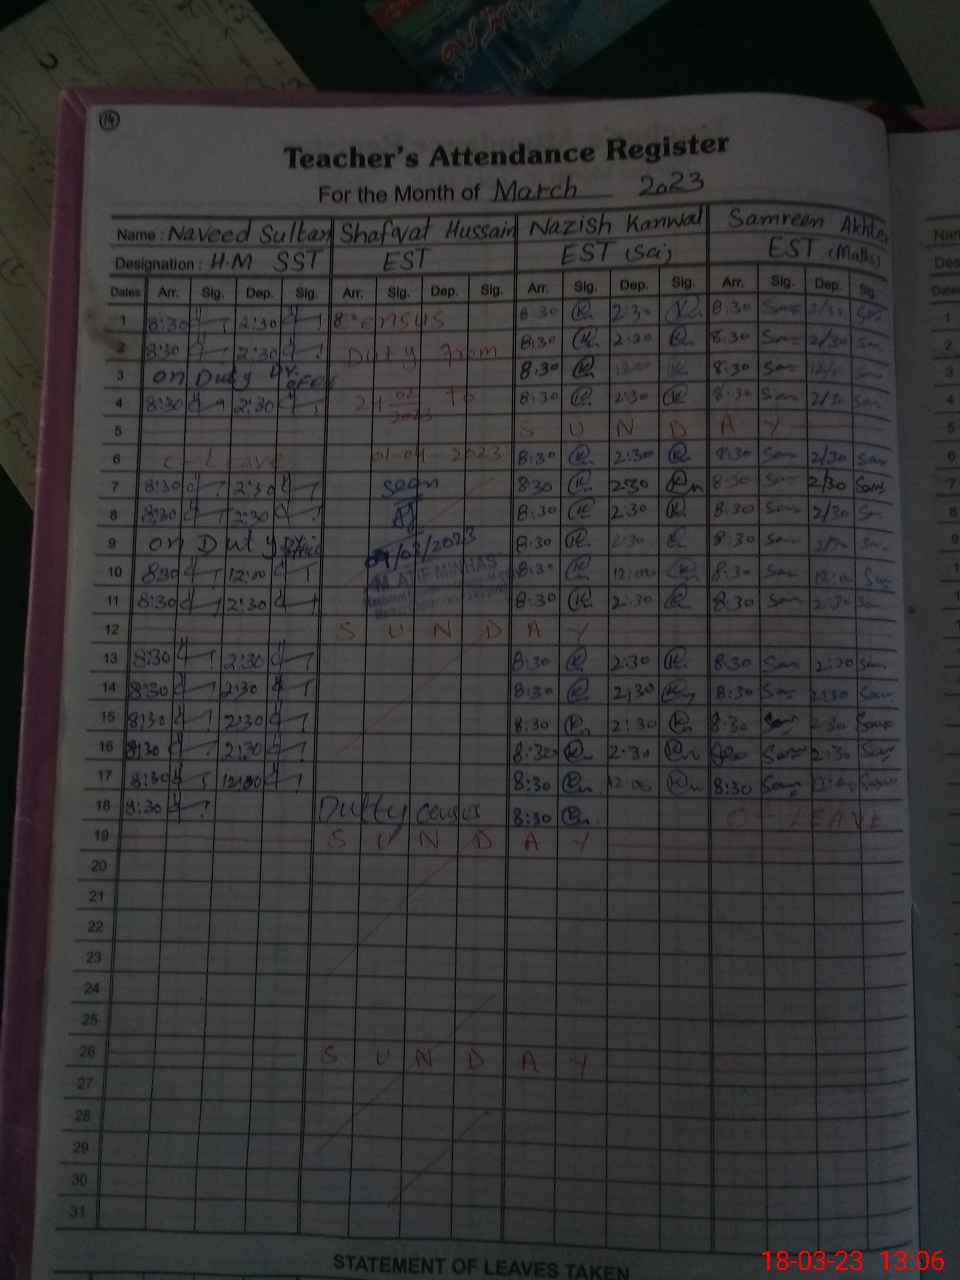 14
Teacher's Attendance Register
For the Month of March 2023
Name : Naveed Sultan Shafqat Hussain Nazish Kanwal Samreen Akhter
Designation : H.M SST EST EST (Sci) EST (Maths)
Dates Arr. Sig. Dep. Sig. Arr. Sig. Dep. Sig. Arr. Sig. Dep. Sig. Arr. Sig. Dep. Sig.
1 8:30 2:30 Census 8:30 2:30 8:30 Sam 2/30 Sam
2 8:30 2:30 Duty From 8:30 2:30 8:30 Sam 2/30 Sam
3 on Duty 8:30 8:30 Sam Sam
4 8:30 2:30 to 8:30 2:30 8:30 Sam 2/30 Sam
5 S U N D A Y
6 C-Leave 01-04-2023 8:30 2:30 8:30 Sam 2/30 Sam
7 8:30 2:30 seen 8:30 2:30 8:30 Sam 2/30 Sam
8 8:30 2:30 8:30 2:30 8:30 Sam 2/30 Sam
9 on Duty 09/03/2023 8:30 2:30 8:30 Sam 2/30 Sam
10 8:30 12:00 M ATIF MINHAS 8:30 12:00 8:30 Sam 12:00 Sam
11 8:30 2:30 8:30 2:30 8:30 Sam 2:30 Sam
12 S U N D A Y
13 8:30 2:30 8:30 2:30 8:30 Sam 2:30 Sam
14 8:30 2:30 8:30 2:30 8:30 Sam 2:30 Sam
15 8:30 2:30 8:30 2:30 8:30 Sam 2:30 Sam
16 8:30 2:30 8:30 2:30 Sam 2:30 Sam
17 8:30 12:00 8:30 12:00 8:30 Sam 12:00 Sam
18 8:30 Dutty 8:30 C-LEAVE
19 S U N D A Y
20
21
22
23
24
25
26 S U N D A Y
27
28
29
30
31
STATEMENT OF LEAVES TAKEN
18-03-23 13:06